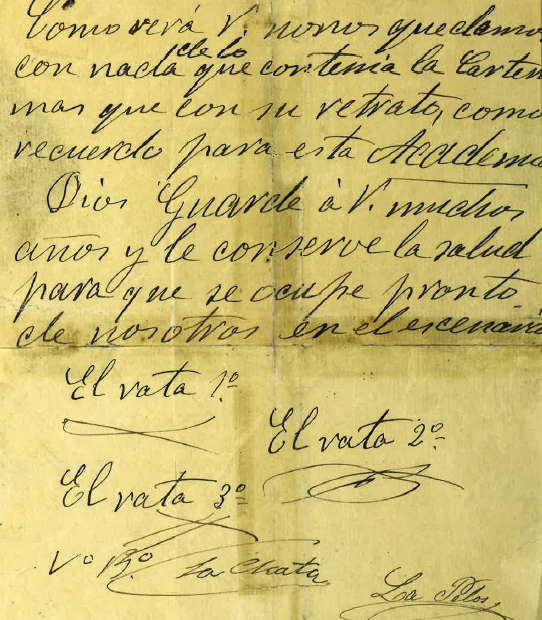 Como verá V. no nos quedamos
con nada de lo que contenia la Carter
mas que con su retrato, como
recuerdo para esta Academia
Dios Guarde à V. muchos
años y le conserve la salud
para que se ocupe pronto
de nosotros en el escenario
El rata 1º
El rata 2º
El rata 3º
Vº Bº La Chata
La Pelos